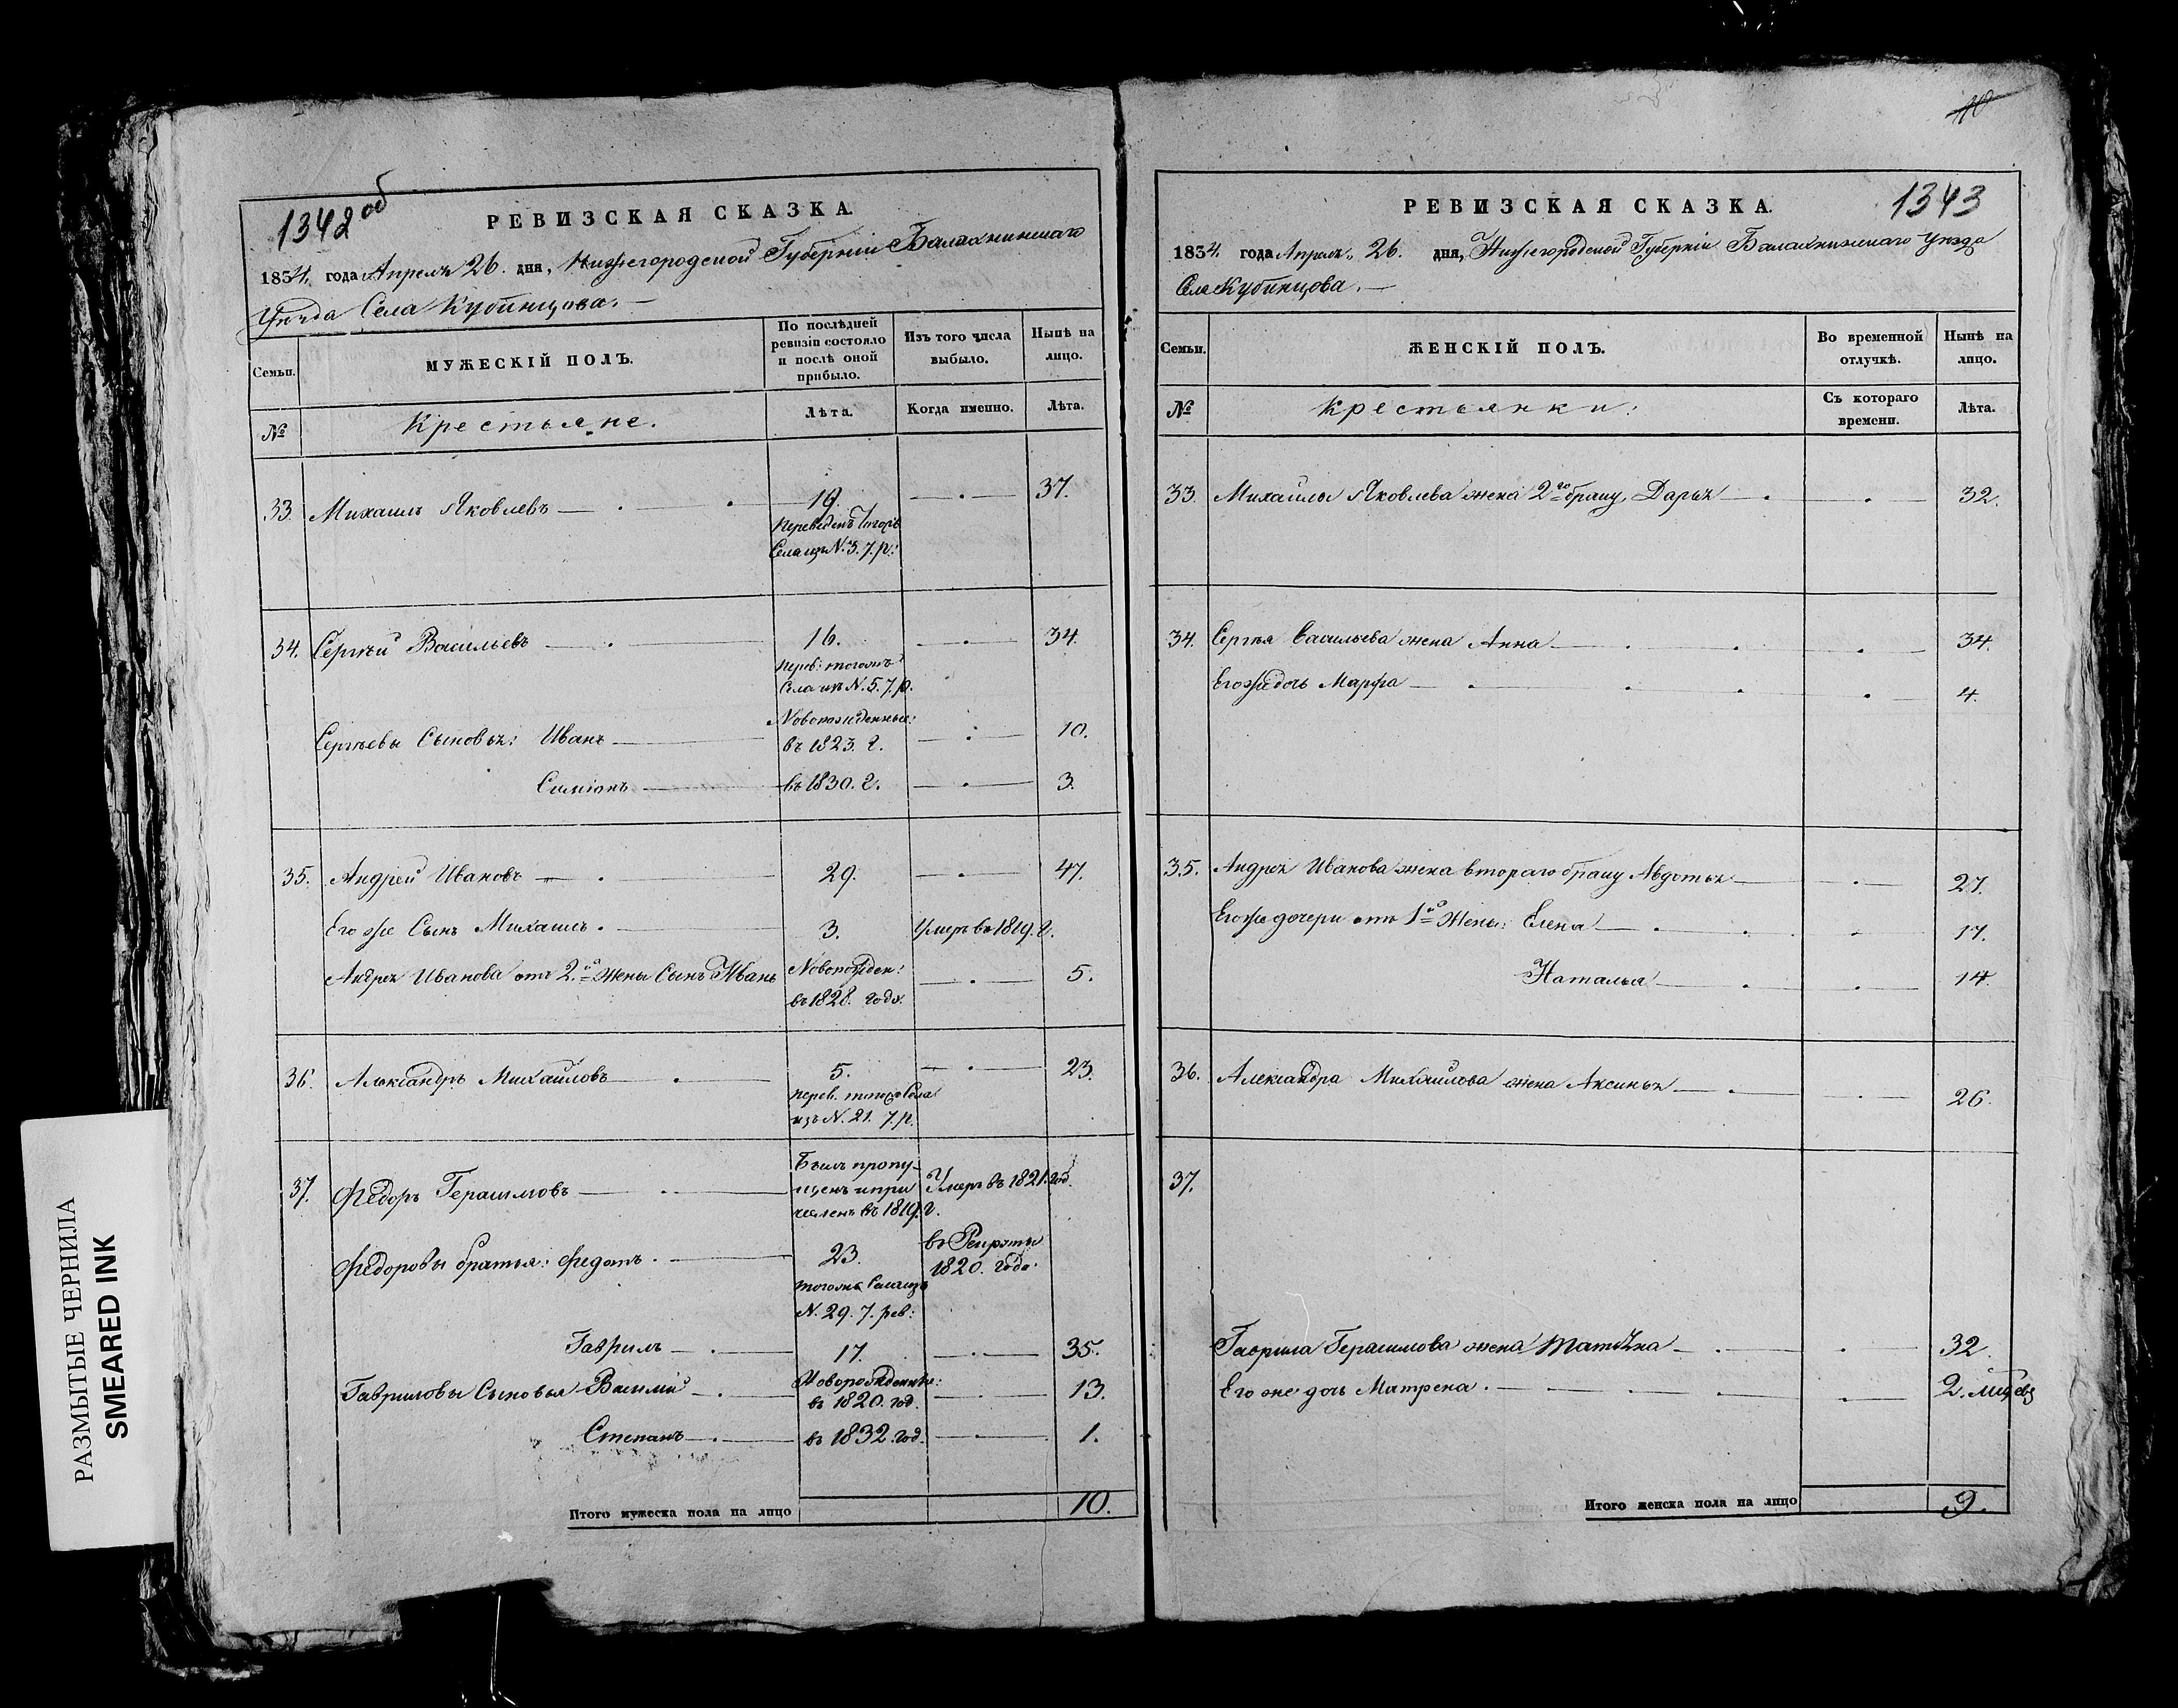 1342 об
РЕВИЗСКАЯ СКАЗКА.
1834. года Апреля 26. дня, Нижегородской Губерніи Балахнинскаго
Уѣзда Села Кубинцова.
Семьи. МУЖЕСКІЙ ПОЛЪ. По послѣдней ревизіи состояло и послѣ оной прибыло. Изъ того числа выбыло. Нынѣ на лицо.
№ Крестьяне. Лѣта. Когда именно. Лѣта.
33. Михаилъ Яковлевъ 19. 37.
Переведенъ
Села изъ N. 3. 7. р:
34. Сергѣй Васильевъ 16. 34.
перев: тогожъ
Села изъ N. 5. 7. р.
Новорожденные:
Сергѣевы Сыновья: Иванъ въ 1823. г. 10.
Симіонъ въ 1830. г. 3.
35. Андрей Ивановъ 29. 47.
Его же Сынъ Михаилъ. 3. Умеръ въ 1819. г.
Андрея Иванова отъ 2.ой Жены Сынъ Иванъ Новорожден: 5.
въ 1828. года.
36. Александръ Михайловъ 5. 23.
перев. тогожъ Села
изъ N. 21. 7. р.
37. Федоръ Герасимовъ Былъ пропу-
щенъ и при Умеръ въ 1821. год.
численъ въ 1819. г.
Федоровы братья: Федотъ. 23. въ Рекруты
1820. года.
тогожъ Села изъ
N. 29. 7. рев:
Гаврилъ 17. 35.
Гавриловы Сыновья Василій Новорожденные: 13.
въ 1820. год.
Степанъ въ 1832. год. 1.
Итого мужеска пола на лицо 10.
40
РЕВИЗСКАЯ СКАЗКА. 1343
1834. года Апреля 26. дня, Нижегородской Губерніи Балахнинскаго уѣзда
Села Кубинцова.
Семьи. ЖЕНСКІЙ ПОЛЪ. Во временной отлучкѣ. Нынѣ на лицо.
№ Крестьянки: Съ котораго времени. Лѣта.
33. Михаила Яковлева жена 2го браку, Дарья 32.
34. Сергѣя Васильева жена Анна 34.
Его же дочь Марфа 4.
35. Андрея Иванова жена втораго браку Авдотья 27.
Его же дочери отъ 1ой Жены: Елена 17.
Наталья 14.
36. Александра Михайлова жена Аксинья 26.
37.
Гаврила Герасимова жена Татьяна 32.
Его же дочь Матрена. 2. месяцев
Итого женска пола на лицо 9.
РАЗМЫТЫЕ ЧЕРНИЛА
SMEARED INK